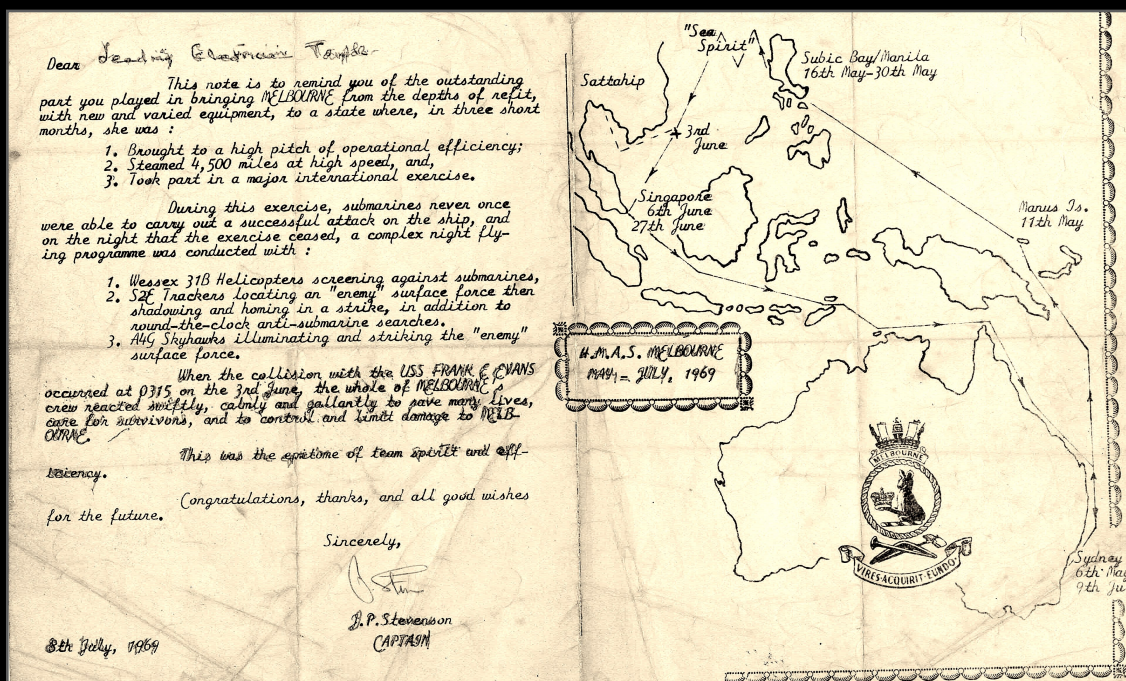 Dear Leading Electrician
This note is to remind you of the outstanding
part you played in bringing MELBOURNE from the depths of refit,
with new and varied equipment, to a state where, in three short
months, she was :
1. Brought to a high pitch of operational efficiency;
2. Steamed 4,500 miles at high speed, and,
3. Took part in a major international exercise.
During this exercise, submarines never once
were able to carry out a successful attack on the ship, and
on the night that the exercise ceased, a complex night fly-
ing programme was conducted with :
1. Wessex 31B Helicopters screening against submarines,
2. S2E Trackers locating an "enemy" surface force then
shadowing and homing in a strike, in addition to
round-the-clock anti-submarine searches.
3. A4G Skyhawks illuminating and striking the "enemy"
surface force.
When the collision with the USS FRANK E EVANS
occurred at 0315 on the 3rd June, the whole of MELBOURNE's
crew reacted swiftly, calmly and gallantly to save many lives,
care for survivors, and to control and limit damage to MELB-
OURNE.
This was the epitome of team spirit and eff-
iciency.
Congratulations, thanks, and all good wishes
for the future.
Sincerely,
J.P.Stevenson
CAPTAIN
8th July, 1969
"Sea
Spirit"
Subic Bay/Manila
16th May-30th May
Sattahip
3rd
June
Singapore
6th June
27th June
Manus Is.
11th May
H.M.A.S. MELBOURNE
MAY - JULY, 1969
MELBOURNE
VIRES·ACQUIRIT·EUNDO
Sydney
6th May
9th Ju